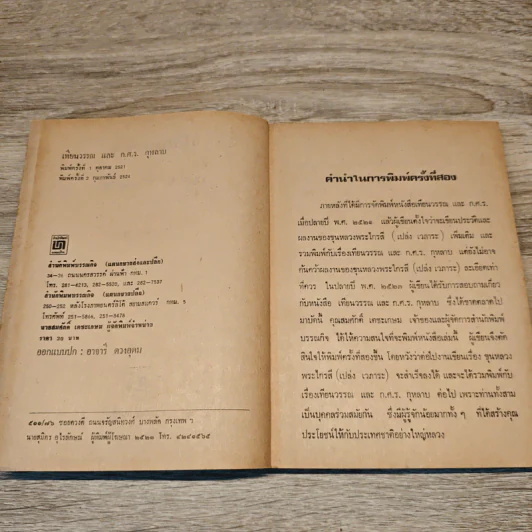 เทียนวรรณ และ ก.ศ.ร. กุหลาบ
พิมพ์ครั้งที่ 1 ตุลาคม 2521
พิมพ์ครั้งที่ 2 กุมภาพันธ์ 2524
สำนักพิมพ์บรรณกิจ
โทร. 281-4213, 282-5520, และ 282-7537
สำนักพิมพ์บรรณกิจ
โทรศัพท์ 251-3844, 251-8476
ราคา 20 บาท
ออกแบบปก :
คำนำในการพิมพ์ครั้งที่สอง
ภายหลังที่ได้มีการจัดพิมพ์หนังสือเทียนวรรณ และ ก.ศ.ร.
เมื่อปลายปี พ.ศ. ๒๕๒๑ แล้วผู้เขียนตั้งใจว่าจะเขียนประวัติและ
ผลงานของขุนหลวงพระไกรสี (เปล่ง เวภาระ) เพิ่มเติม และ
รวมพิมพ์กับเรื่องเทียนวรรณ และ ก.ศ.ร. กุหลาบ แต่ยังไม่อาจ
ค้นคว้าผลงานของขุนหลวงพระไกรสี (เปล่ง เวภาระ) ละเอียดเท่า
ที่ควร ในปลายปี พ.ศ. ๒๕๒๓ ผู้เขียนได้รับการสอบถามเกี่ยว
กับหนังสือ เทียนวรรณ และ ก.ศ.ร. กุหลาบ ซึ่งได้ขาดตลาดไป
มาบัดนี้ คุณสมศักดิ์ เตชะเกษม เจ้าของและผู้จัดการสำนักพิมพ์
บรรณกิจ ได้ให้ความสนใจที่จะพิมพ์หนังสือเล่มนี้ ผู้เขียนจึงตัด
สินใจให้พิมพ์ครั้งที่สองขึ้น โดยหวังว่าต่อไปงานเขียนเรื่อง ขุนหลวง
พระไกรสี (เปล่ง เวภาระ) จะสำเร็จลงได้ และจะได้รวมพิมพ์กับ
เรื่องเทียนวรรณ และ ก.ศ.ร. กุหลาบ ต่อไป เพราะท่านทั้งสาม
เป็นบุคคลร่วมสมัยกัน ซึ่งมีผู้รู้จักน้อยมากทั้ง ๆ ที่ได้สร้างคุณ
ประโยชน์ให้กับประเทศชาติอย่างใหญ่หลวง